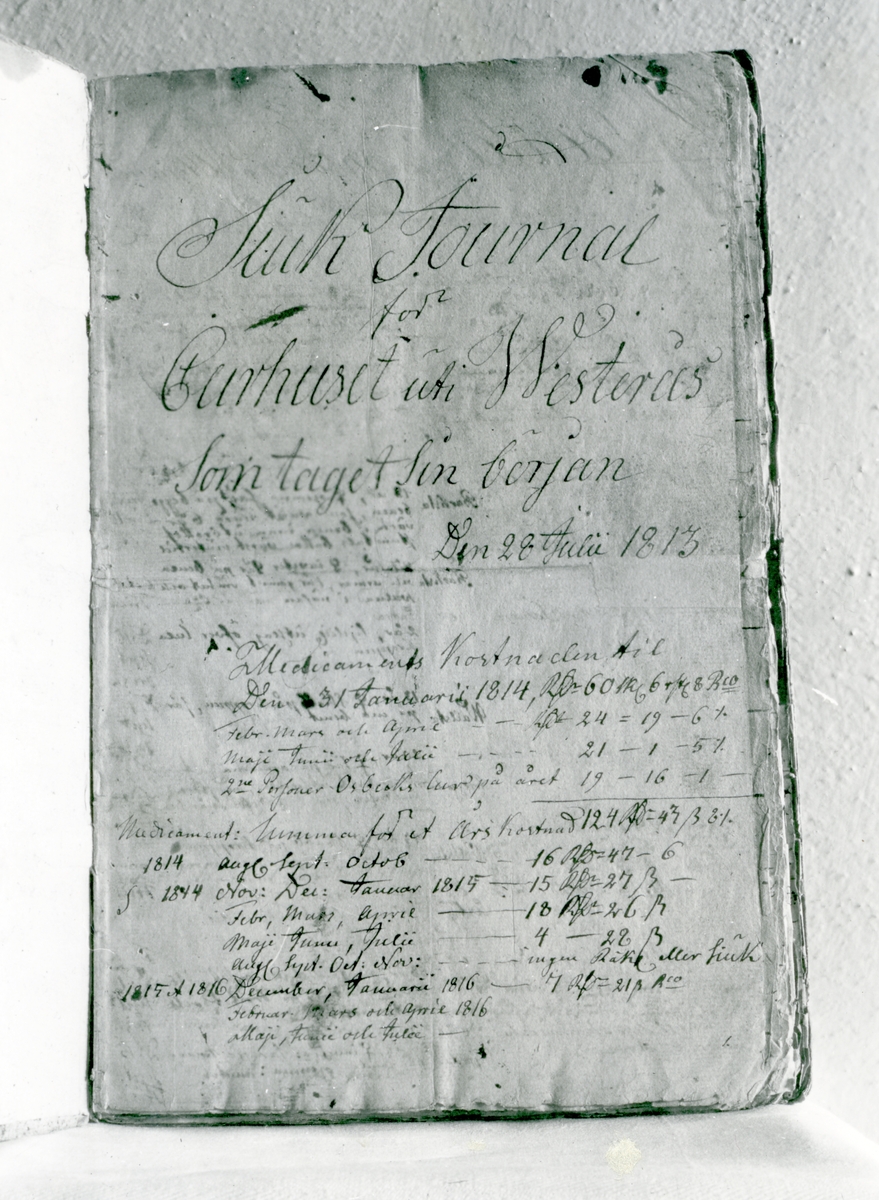 Siuk Journal
för
Curhuset uti Westerås
Som taget Sin början
Den 28 Julii 1813
Medicaments Kostnaden til
Den 31 Januarii 1814, Rdr 60 6 8 Rco
Febr. Mars och April — — 24 = 19 — 6
Maji Junii och Julii — — 21 — 1 — 5
2ne Personer Osbecks Cur på året 19 — 16 — 1 —
Medicament: Summa för et års Kostnad 124 Rdr = 47 ß 8
1814 Augt Sept. Octob — 16 Rdr = 47 — 6
1814 Nov: Dec: Januar 1815 — 15 Rdr = 27 ß —
Febr, Mars, April — 18 Rdr = 26 ß
Maji Junii, Julii — 4 — 28 ß
Augt Sept. Oct: Nov: — ingen eller Siuk
1815 et 1816 December, Januarii 1816 — 7 Rdr = 21 ß Rco
Februar Mars och April 1816
Maji, Junii och Julii —